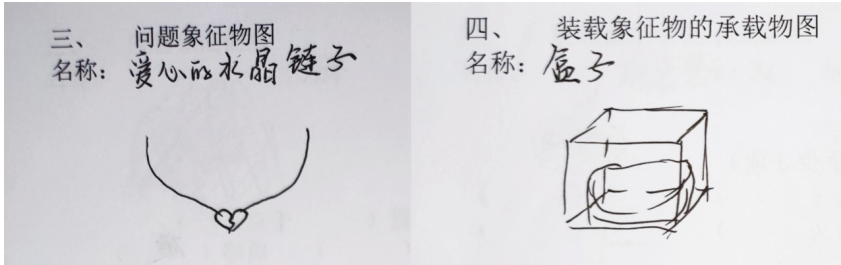 三、 问题象征物图
名称：爱心的水晶链子
四、 装载象征物的承载物图
名称：盒子